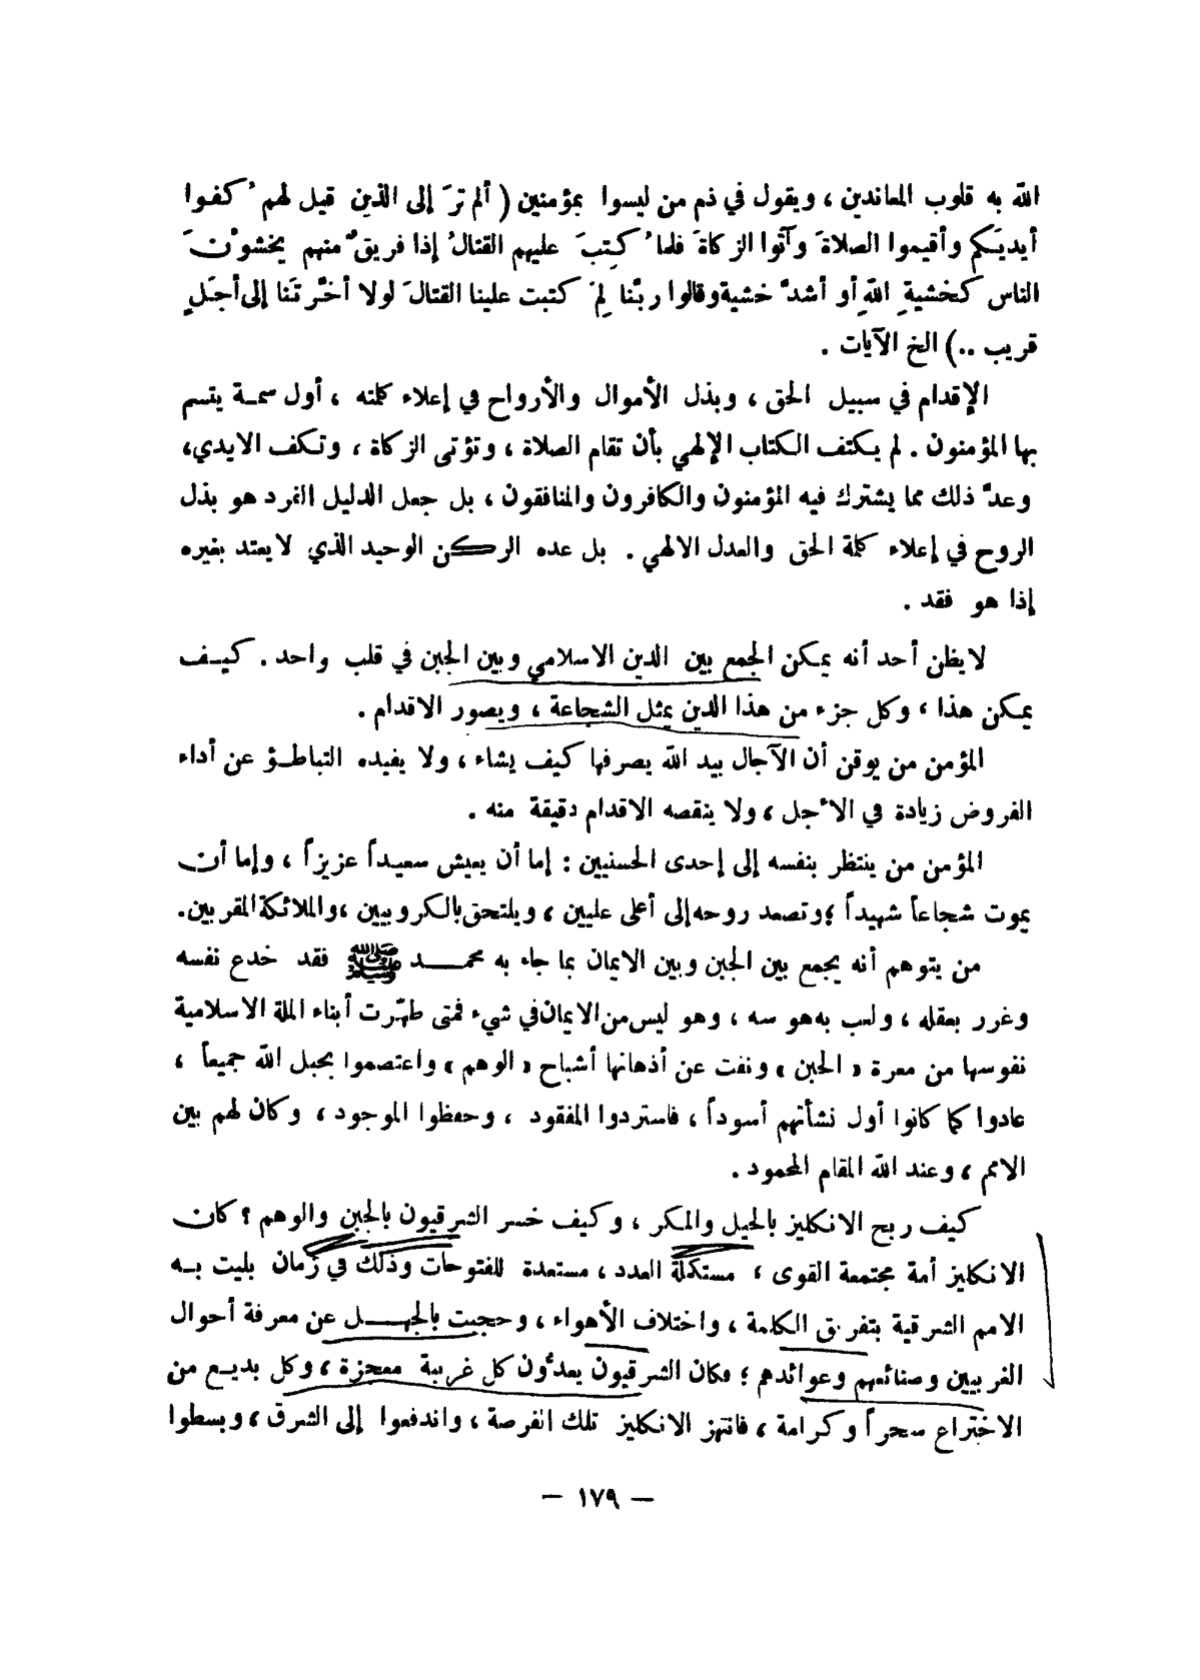 الله به قلوب المعاندين ، ويقول في ذم من ليسوا بمؤمنين ( ألم ترَ إلى الذين قيل لهم ُ كفوا
أيديَكم وأقيموا الصلاةَ وآتوا الزكاةَ فلما ُ كتِبَ عليهم القتالُ إذا فريقٌ منهم يخشوْنَ
الناس كخشيةِ اللهِ أو أشدَّ خشية وقالوا ربّنا لِمَ كتبت علينا القتالَ لولا أخّرتَنا إلى أجَلٍ
قريب ..) الخ الآيات .
الإقدام في سبيل الحق ، وبذل الأموال والأرواح في إعلاء كلمته ، أول سمـة يتسم
بها المؤمنون . لم يكتف الكتاب الإلهي بأن تقام الصلاة ، وتؤتى الزكاة ، وتكف الايدي،
وعدَّ ذلك مما يشترك فيه المؤمنون والكافرون والمنافقون ، بل جعل الدليل الفرد هو بذل
الروح في إعلاء كلمة الحق والعدل الالهي . بل عده الركن الوحيد الذي لا يعتد بغيره
إذا هو فقد .
لا يظن أحد أنه يمكن الجمع بين الدين الاسلامي وبين الجبن في قلب واحد . كيـف
يمكن هذا ، وكل جزء من هذا الدين يمثل الشجاعة ، ويصور الاقدام .
المؤمن من يوقن أن الآجال بيد الله يصرفها كيف يشاء ، ولا يفيده التباطـؤ عن أداء
الفروض زيادة في الأجل ، ولا ينقصه الاقدام دقيقة منه .
المؤمن من ينتظر بنفسه إلى إحدى الحسنيين : إما أن يعيش سعيـداً عزيزاً ، وإما أن
يموت شجاعاً شهيداً ؛ وتصعد روحه إلى أعلى عليين ، ويلتحق بالكروبيين ، والملائكة المقربين.
من يتوهم أنه يجمع بين الجبن وبين الايمان بما جاء به محمــد ﷺ فقد خدع نفسه
وغرر بعقله ، ولعب به هو سه ، وهو ليس من الايمان في شيء فمتى طهّرت أبناء الملة الاسلامية
نفوسها من معرة « الجبن » ونفت عن أذهانها أشباح « الوهم » واعتصموا بحبل الله جميعاً ،
عادوا كما كانوا أول نشأتهم أسوداً ، فاستردوا المفقود ، وحفظوا الموجود ، وكان لهم بين
الامم ، وعند الله المقام المحمود .
كيف ربح الانكليز بالحيل والمكر ، وكيف خسر الشرقيون بالجبن والوهم ؟ كان
الانكليز أمة مجتمعة القوى ، مستكملة العدد ، مستعدة للفتوحات وذلك في زمان بليت بـه
الامم الشرقية بتفرق الكلمة ، واختلاف الأهواء ، وحجبت بالجهــل عن معرفة أحوال
الغربيين وصنائعهم وعوائدهم ؛ فكان الشرقيون يعدُّون كل غريبة معجزة ، وكل بديـع من
الاختراع سحراً وكرامة ، فانتهز الانكليز تلك الفرصة ، واندفعوا إلى الشرق ، وبسطوا
– ١٧٩ –